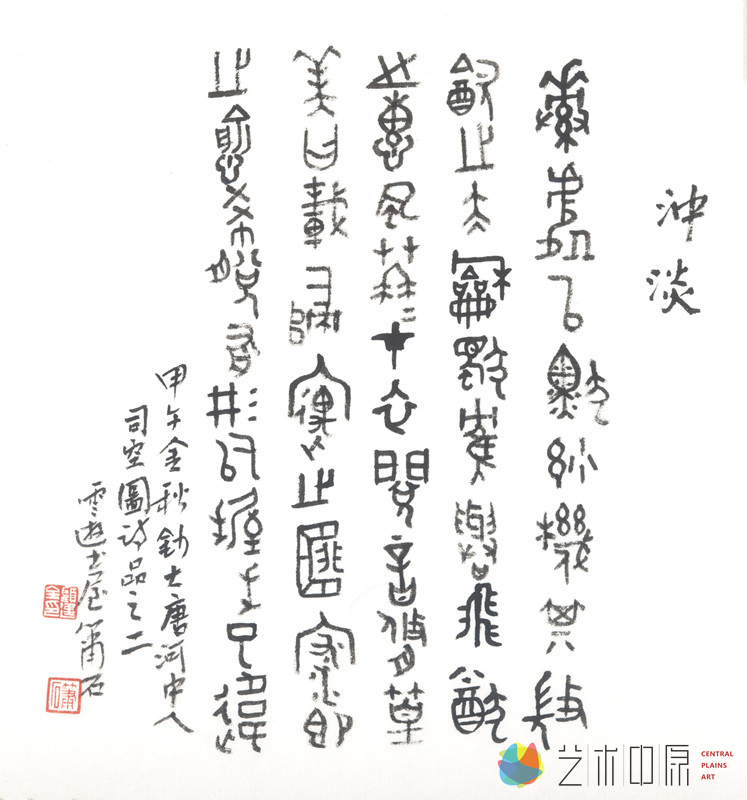 沖淡
素處以默妙機其微
飲之太和獨鶴與飛猶
之惠風荏苒在衣閱音修篁
美曰載歸遇之匪深即
之愈希脱有形似握手已違
甲午金秋鈔大唐河中人
司空圖詩品之二
雲遊書屋簫石
艺术中原
CENTRAL
PLAINS
ART